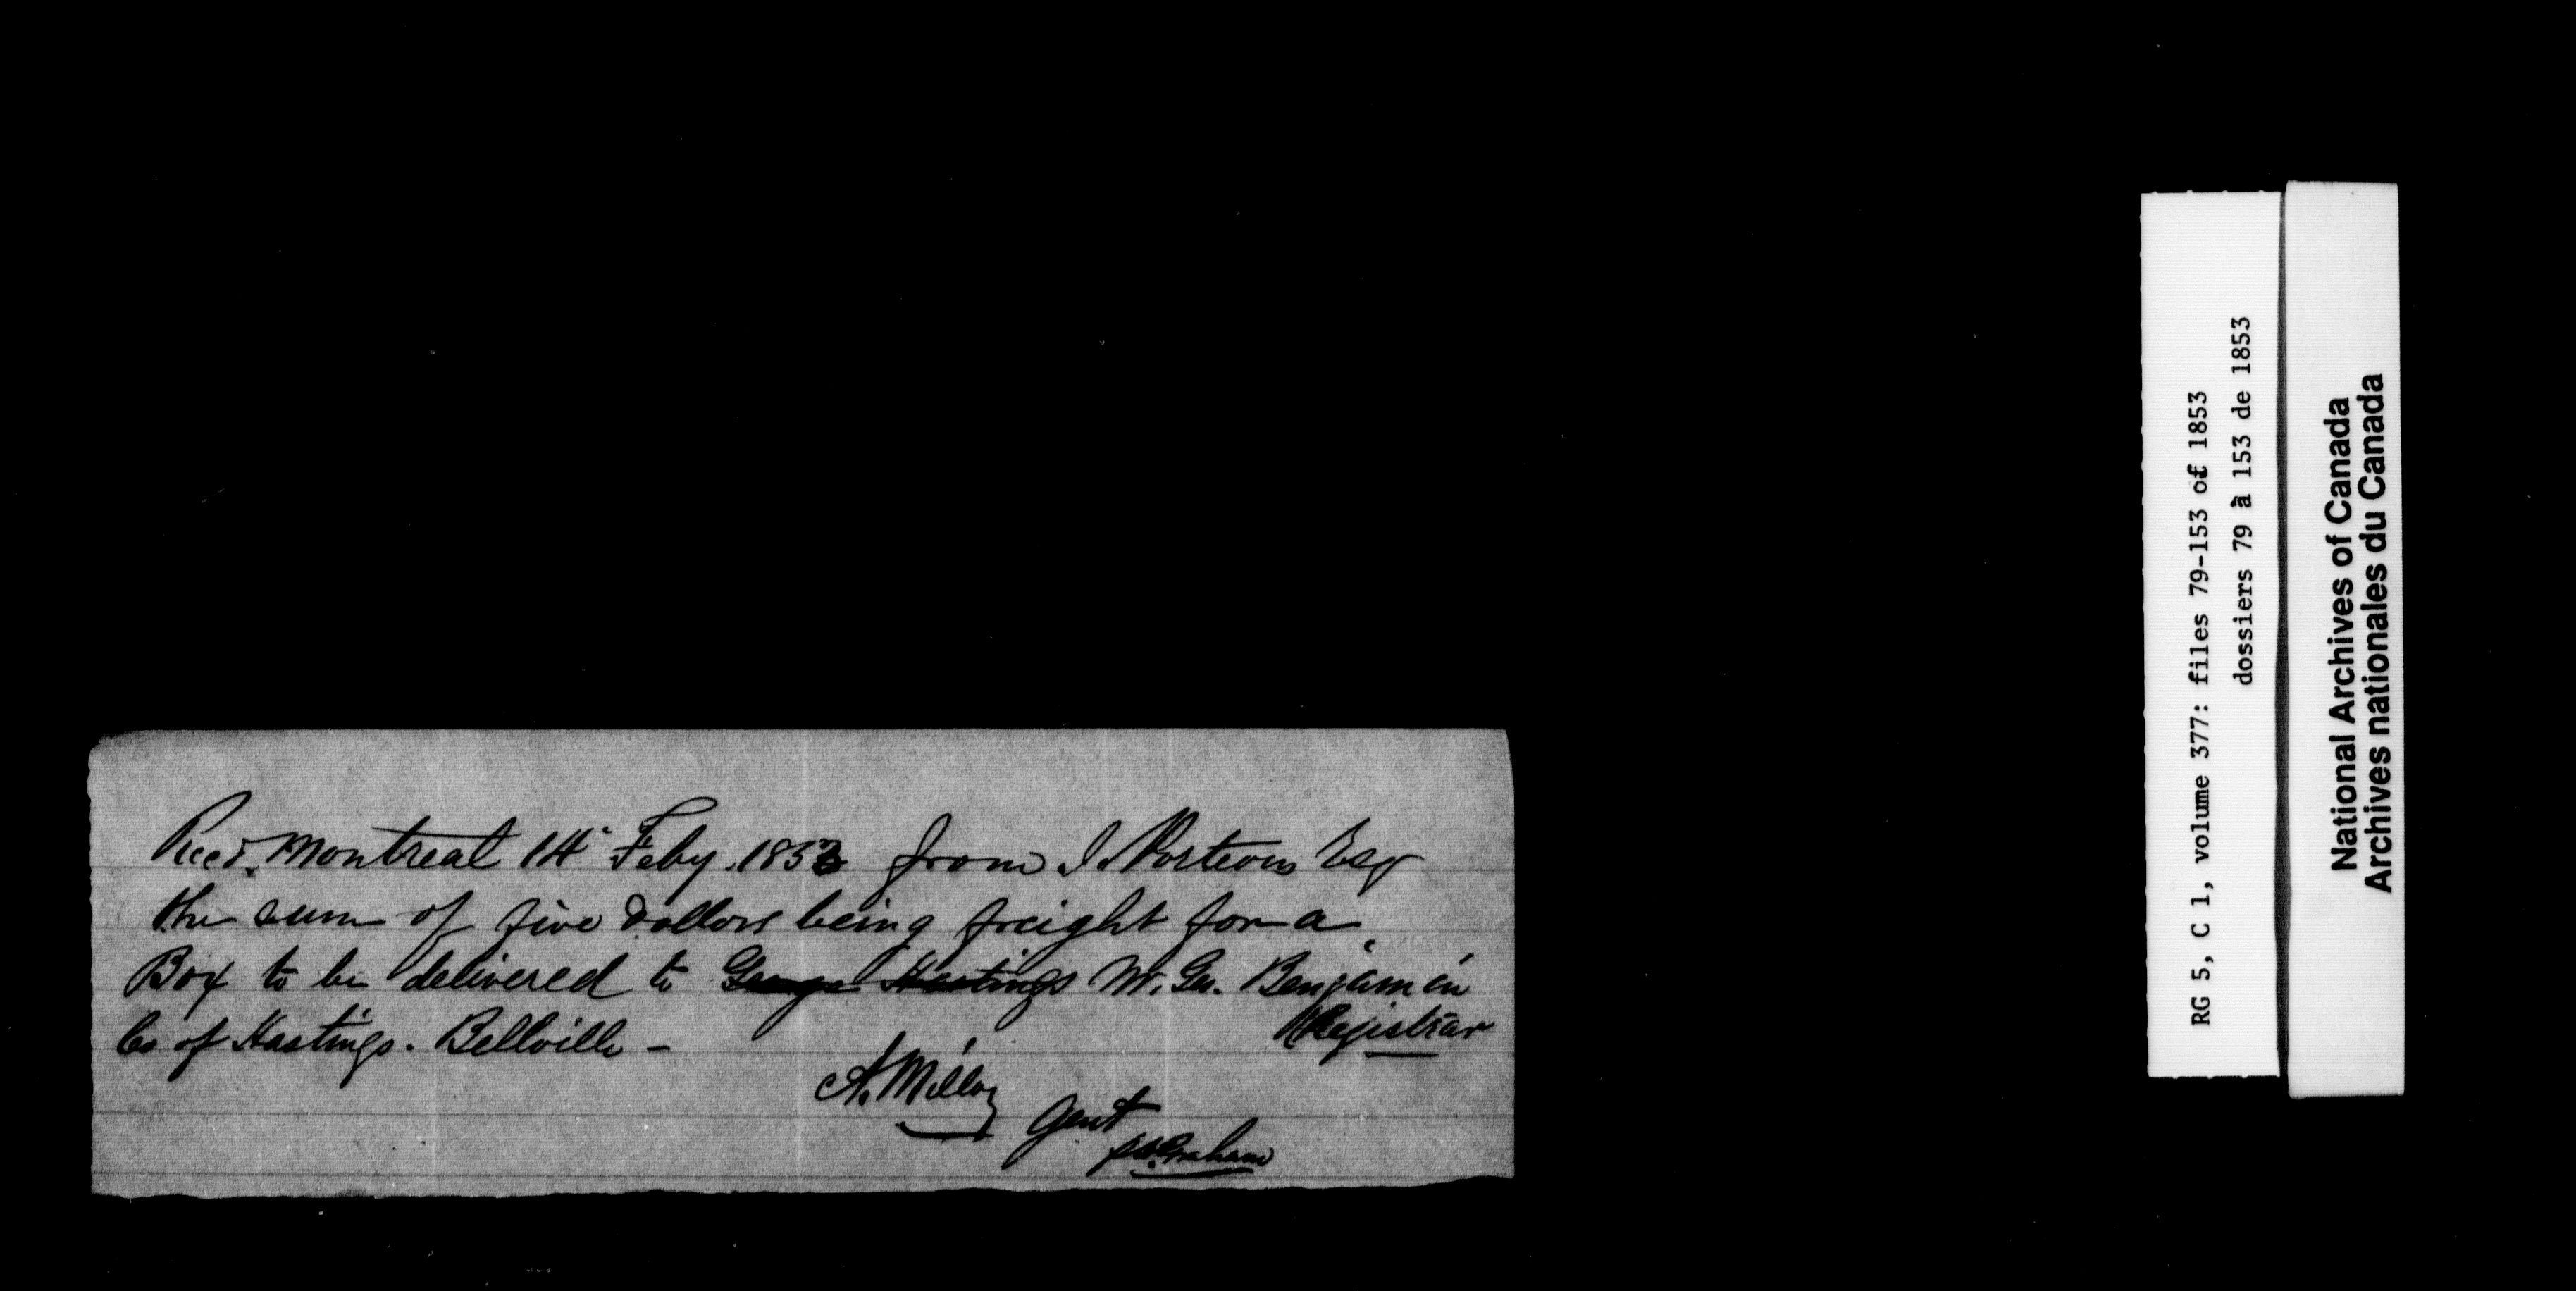 Recd. Montreal 14 Feby. 1853 from J. Porteous Esqr
the sum of five Dollars being freight for a
Box to be delivered to George Hastings Mr. Geo. Benjamin
Registrar
Co of Hastings. Bellville -
A. Milloy
Gent
Graham
RG 5, C 1, volume 377: files 79-153 of 1853
dossiers 79 à 153 de 1853
National Archives of Canada
Archives nationales du Canada